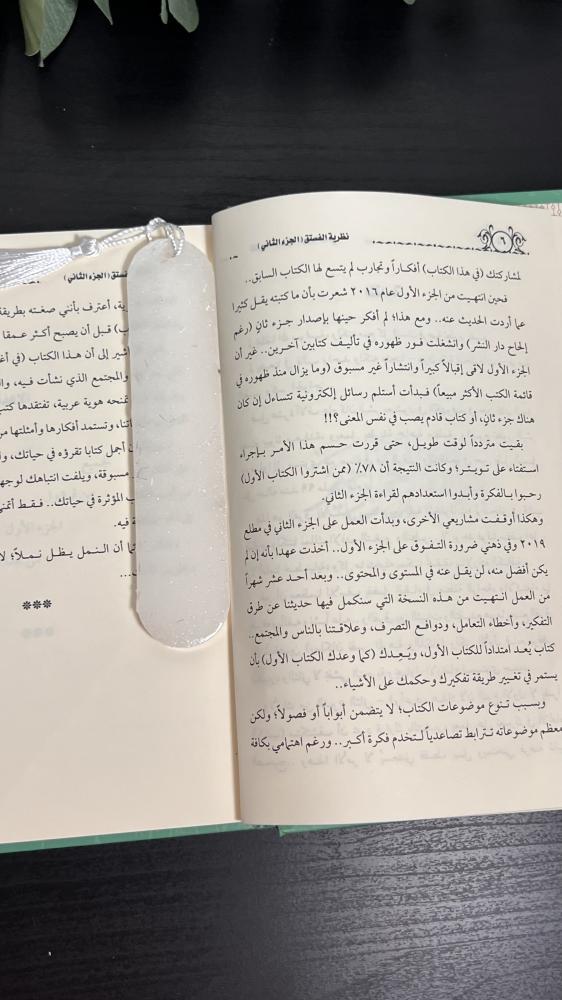 ٦
نظرية الفستق (الجزء الثاني)
لمشاركتك (في هذا الكتاب) أفكاراً وتجارب لم يتسع لها الكتاب السابق..
فحين انتهيت من الجزء الأول عام ٢٠١٦ شعرت بأن ما كتبته يقل كثيرا
عما أردت الحديث عنه.. ومع هذا؛ لم أفكر حينها بإصدار جزء ثانٍ (رغم
إلحاح دار النشر) وانشغلت فور ظهوره في تأليف كتابين آخرين.. غير أن
الجزء الأول لاقى إقبالاً كبيراً وانتشاراً غير مسبوق (وما يزال منذ ظهوره في
قائمة الكتب الأكثر مبيعاً) فبدأت أستلم رسائل إلكترونية تتساءل إن كان
هناك جزء ثانٍ، أو كتاب قادم يصب في نفس المعنى؟!!
بقيت متردداً لوقت طويل، حتى قررت حسم هذا الأمر بإجراء
استفتاء على تويتر؛ وكانت النتيجة أن ٧٨٪ (ممن اشتروا الكتاب الأول)
رحبوا بالفكرة وأبدوا استعدادهم لقراءة الجزء الثاني.
وهكذا أوقفت مشاريعي الأخرى، وبدأت العمل على الجزء الثاني في مطلع
٢٠١٩ وفي ذهني ضرورة التفوق على الجزء الأول.. أخذت عهدا بأنه إن لم
يكن أفضل منه، لن يقل عنه في المستوى والمحتوى.. وبعد أحد عشر شهراً
من العمل انتهيت من هذه النسخة التي سنكمل فيها حديثنا عن طرق
التفكير، وأخطاء التعامل، ودوافع التصرف، وعلاقتنا بالناس والمجتمع..
كتاب يُعد امتداداً للكتاب الأول، ويَعِدك (كما وعدك الكتاب الأول) بأن
يستمر في تغيير طريقة تفكيرك وحكمك على الأشياء..
وبسبب تنوع موضوعات الكتاب؛ لا يتضمن أبواباً أو فصولاً؛ ولكن
معظم موضوعاته تترابط تصاعدياً لتخدم فكرة أكبر.. ورغم اهتمامي بكافة
(الجزء الثاني)
أعترف بأنني صغته بطريقة
قبل أن يصبح أكثر عمقا
إلى أن هذا الكتاب (في
والمجتمع الذي نشأت فيه،
هوية عربية، تفتقدها
وتستمد أفكارها وأمثلتها
أجمل كتابا تقرؤه في حياتك،
مسبوقة، ويلفت انتباهك
المؤثرة في حياتك.. فقط
فيه.
أن النمل يظل نملاً؛
***